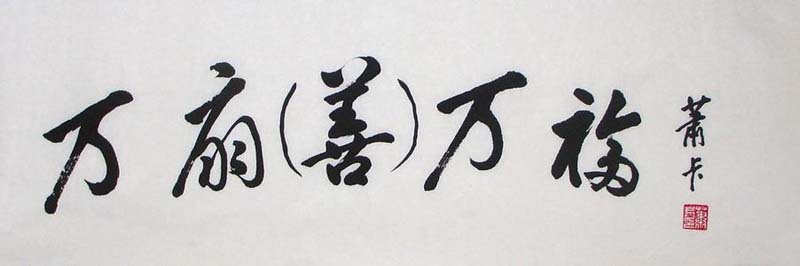 万扇(善)万福
萧卡